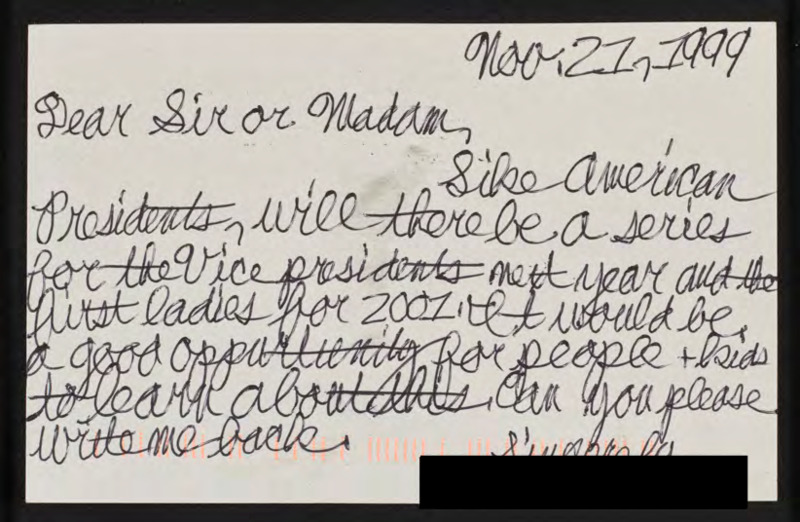 Nov. 21, 1999
Dear Sir or Madam,
Like American
Presidents, will there be a series
for the Vice presidents next year and the
first ladies for 2001. It would be
a good oppurtunity for people + kids
to learn about this. Can you please
write me back.
Sincerely